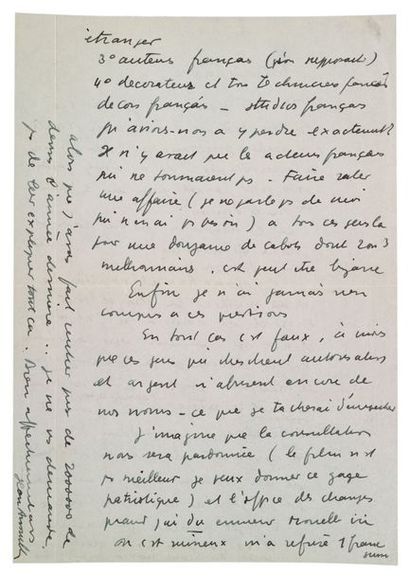 étranger
3° auteurs français (je m'en
4° décorateurs et tous techniciens français
décors français – studios français
qu'avions-nous à y perdre exactement?
Il n'y avait que les acteurs français
qui ne tournaient ps. Faire rater
une affaire (je ne parle ps de moi
qui n'en ai ps besoin) a tous ces gens là
pour une douzaine de cabots dont 2 ou 3
millionnaires, c'est peut être bizarre
Enfin je n'ai jamais rien
compris a ces questions
En tout cas c'est faux, à moins
que ces gens qui cherchent autorisations
et argent n'abusent encore de
nos noms – ce que je tacherai d'empecher
J'imagine que la consultation
nous sera pardonnée (le film n'est
ps meilleur je veux donner ce gage
patriotique) et l'office des changes
quand j'ai du
on est m'a refusé 1 franc
alors que j'avais fait rentrer près de 200000 de
devises l'année dernière.. je ne vs demande
ps de leur expliquer tout ça. Bien affectueusement
Jean Anouilh